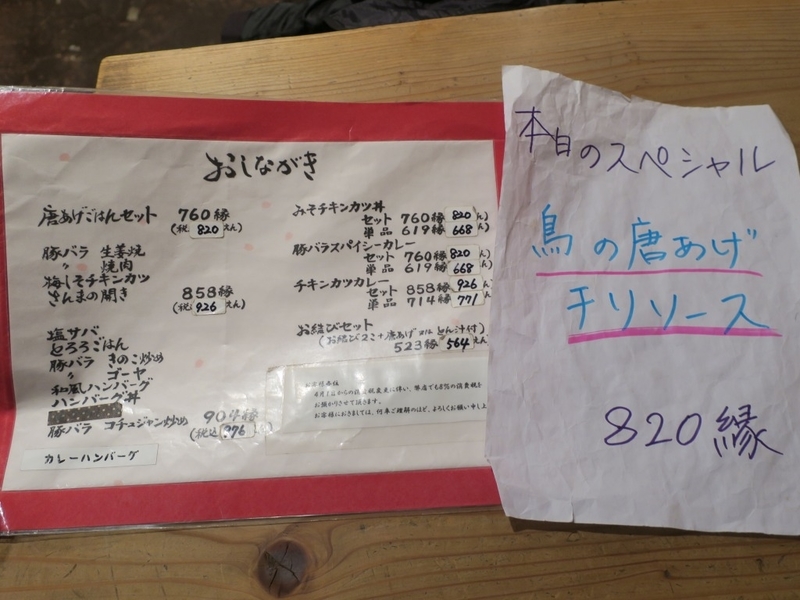 おしながき
唐あげごはんセット 760縁
(税 820 えん)
豚バラ 生姜焼
〃 焼肉
梅しそチキンカツ
さんまの開き 858縁
(税 926 えん)
塩サバ
とろろごはん
豚バラ きのこ炒め
〃 ゴーヤ
和風ハンバーグ
ハンバーグ丼
豚バラ コチュジャン炒め 904縁
(税込 976 )
カレーハンバーグ
みそチキンカツ丼
セット 760縁 820 ん)
単品 619縁 668 ん)
豚バラスパイシーカレー
セット 760縁 820 ん)
単品 619縁 668 ん)
チキンカツカレー
セット 858縁 926 ん)
単品 714縁 771 ん)
お結びセット
(お結び2こ+唐あげ又はとん汁付)
523縁 564 えん)
お客様各位
4月1日からの消費税改正に伴い、弊店でも8%の消費税を
お預かりさせて頂きます。
お客様におきましては、何卒ご理解のほど、よろしくお願い申し上
本日のスペシャル
鳥の唐あげ
チリソース
820縁